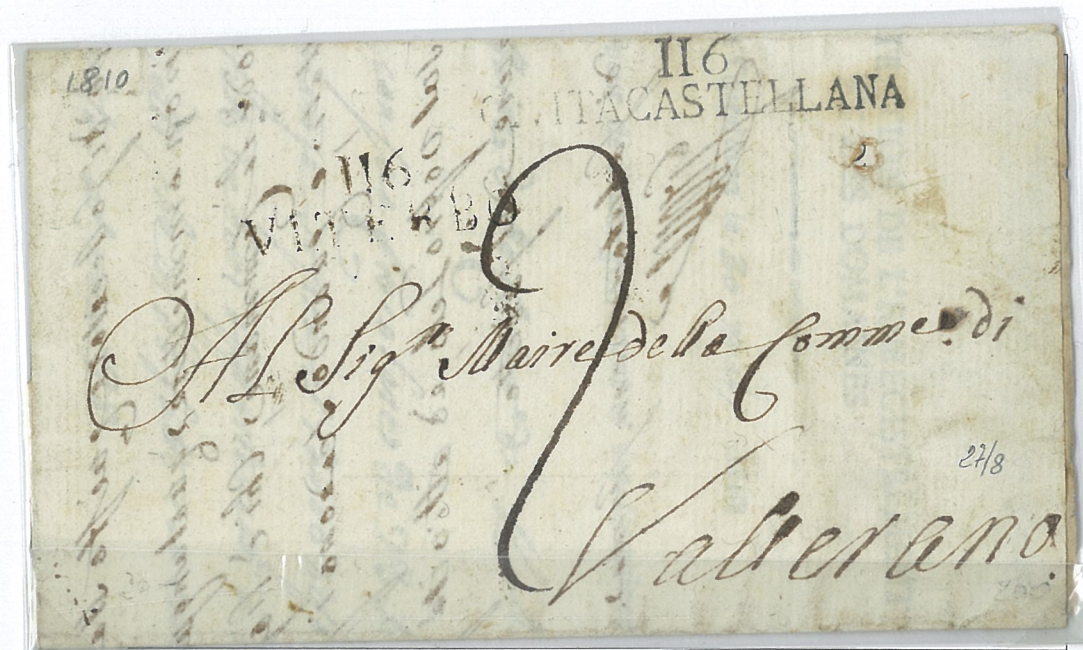 1810
116
CIVITACASTELLANA
116
VITERBO
2
Al Sigr Maire della Comme di
27/8
Vallerano